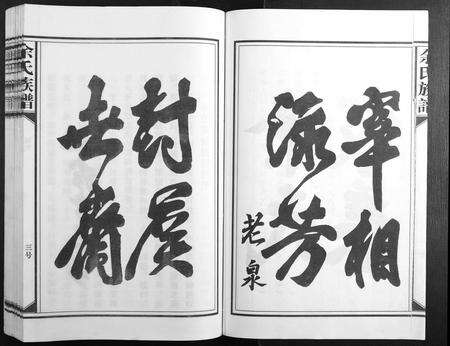 余氏族譜
宰相
流芳
老泉
封
世裔
余氏族譜
三号